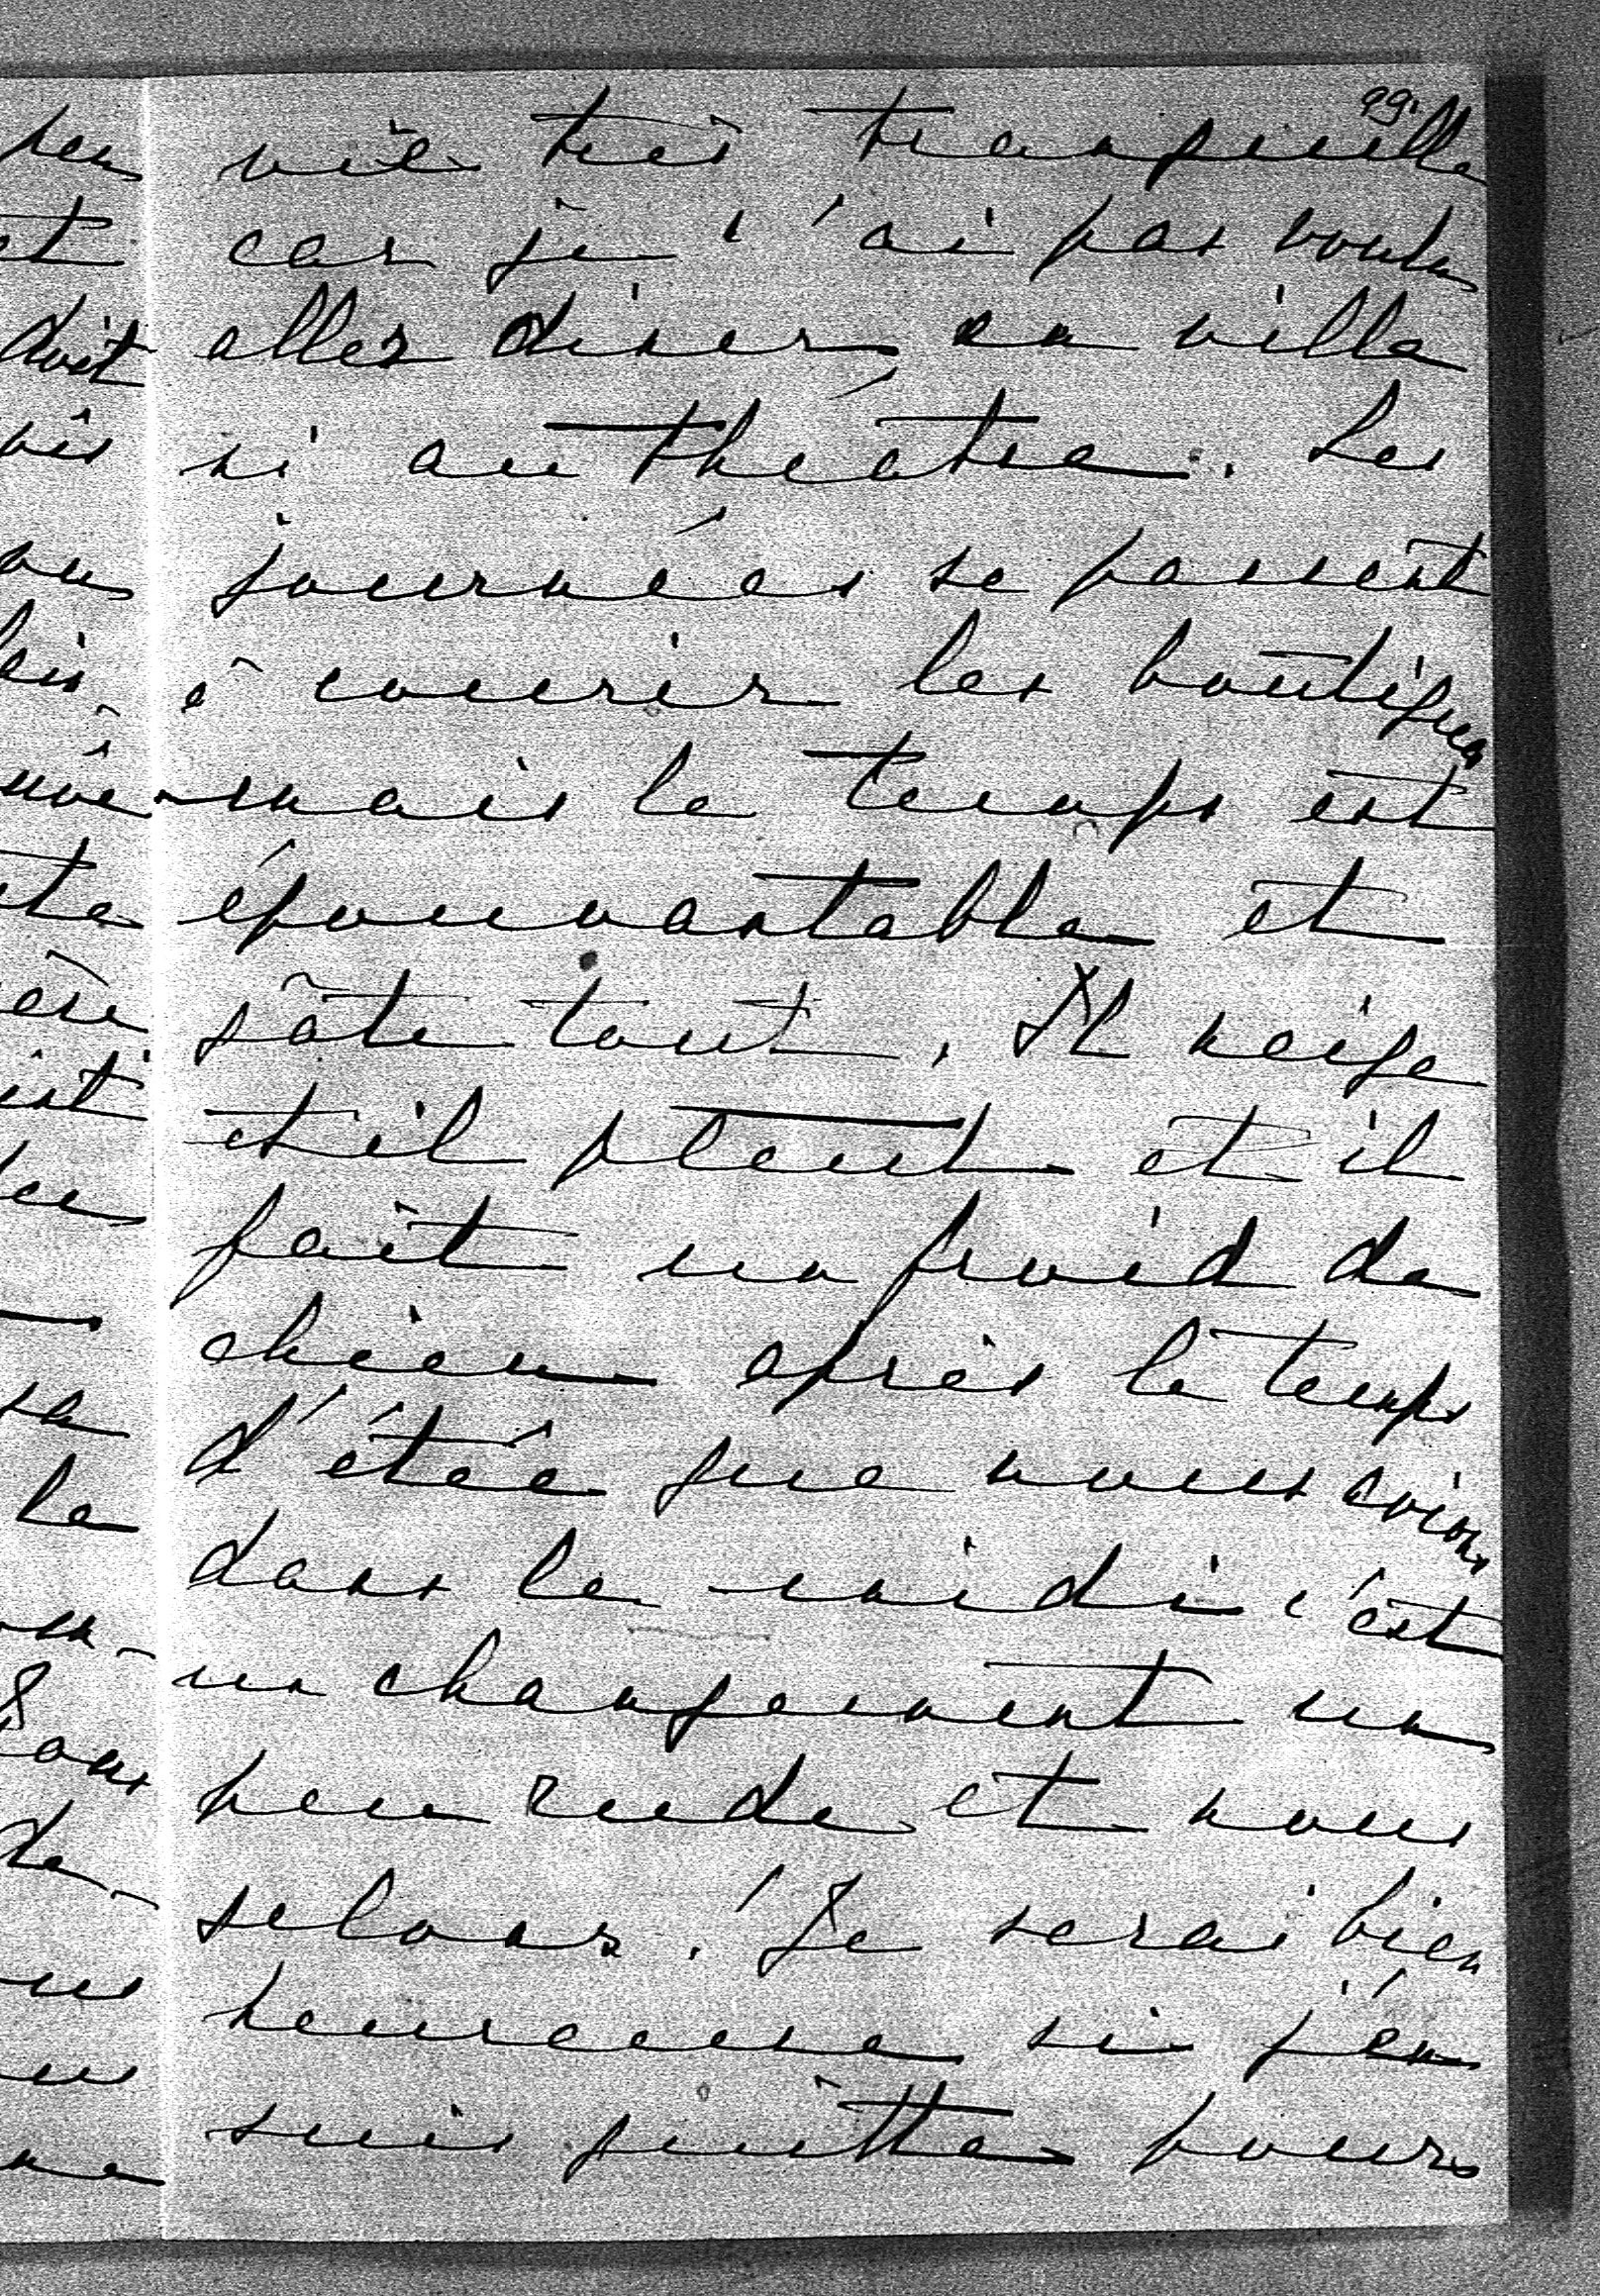 99.
vie très tranquille
car je n'ai pas voulu
aller diner en ville
ni au théâtre. Les
journées se passent
à courir les boutiques
mais le temps est
épouvantable et
gâte tout. Il neige
et il pleut et il
fait un froid de
chien après le temps
d'étée que nous avions
dans le midi c'est
un changement un
peu rude et nous
gelons. Je serai bien
heureuse si j'en
suis quitte pour